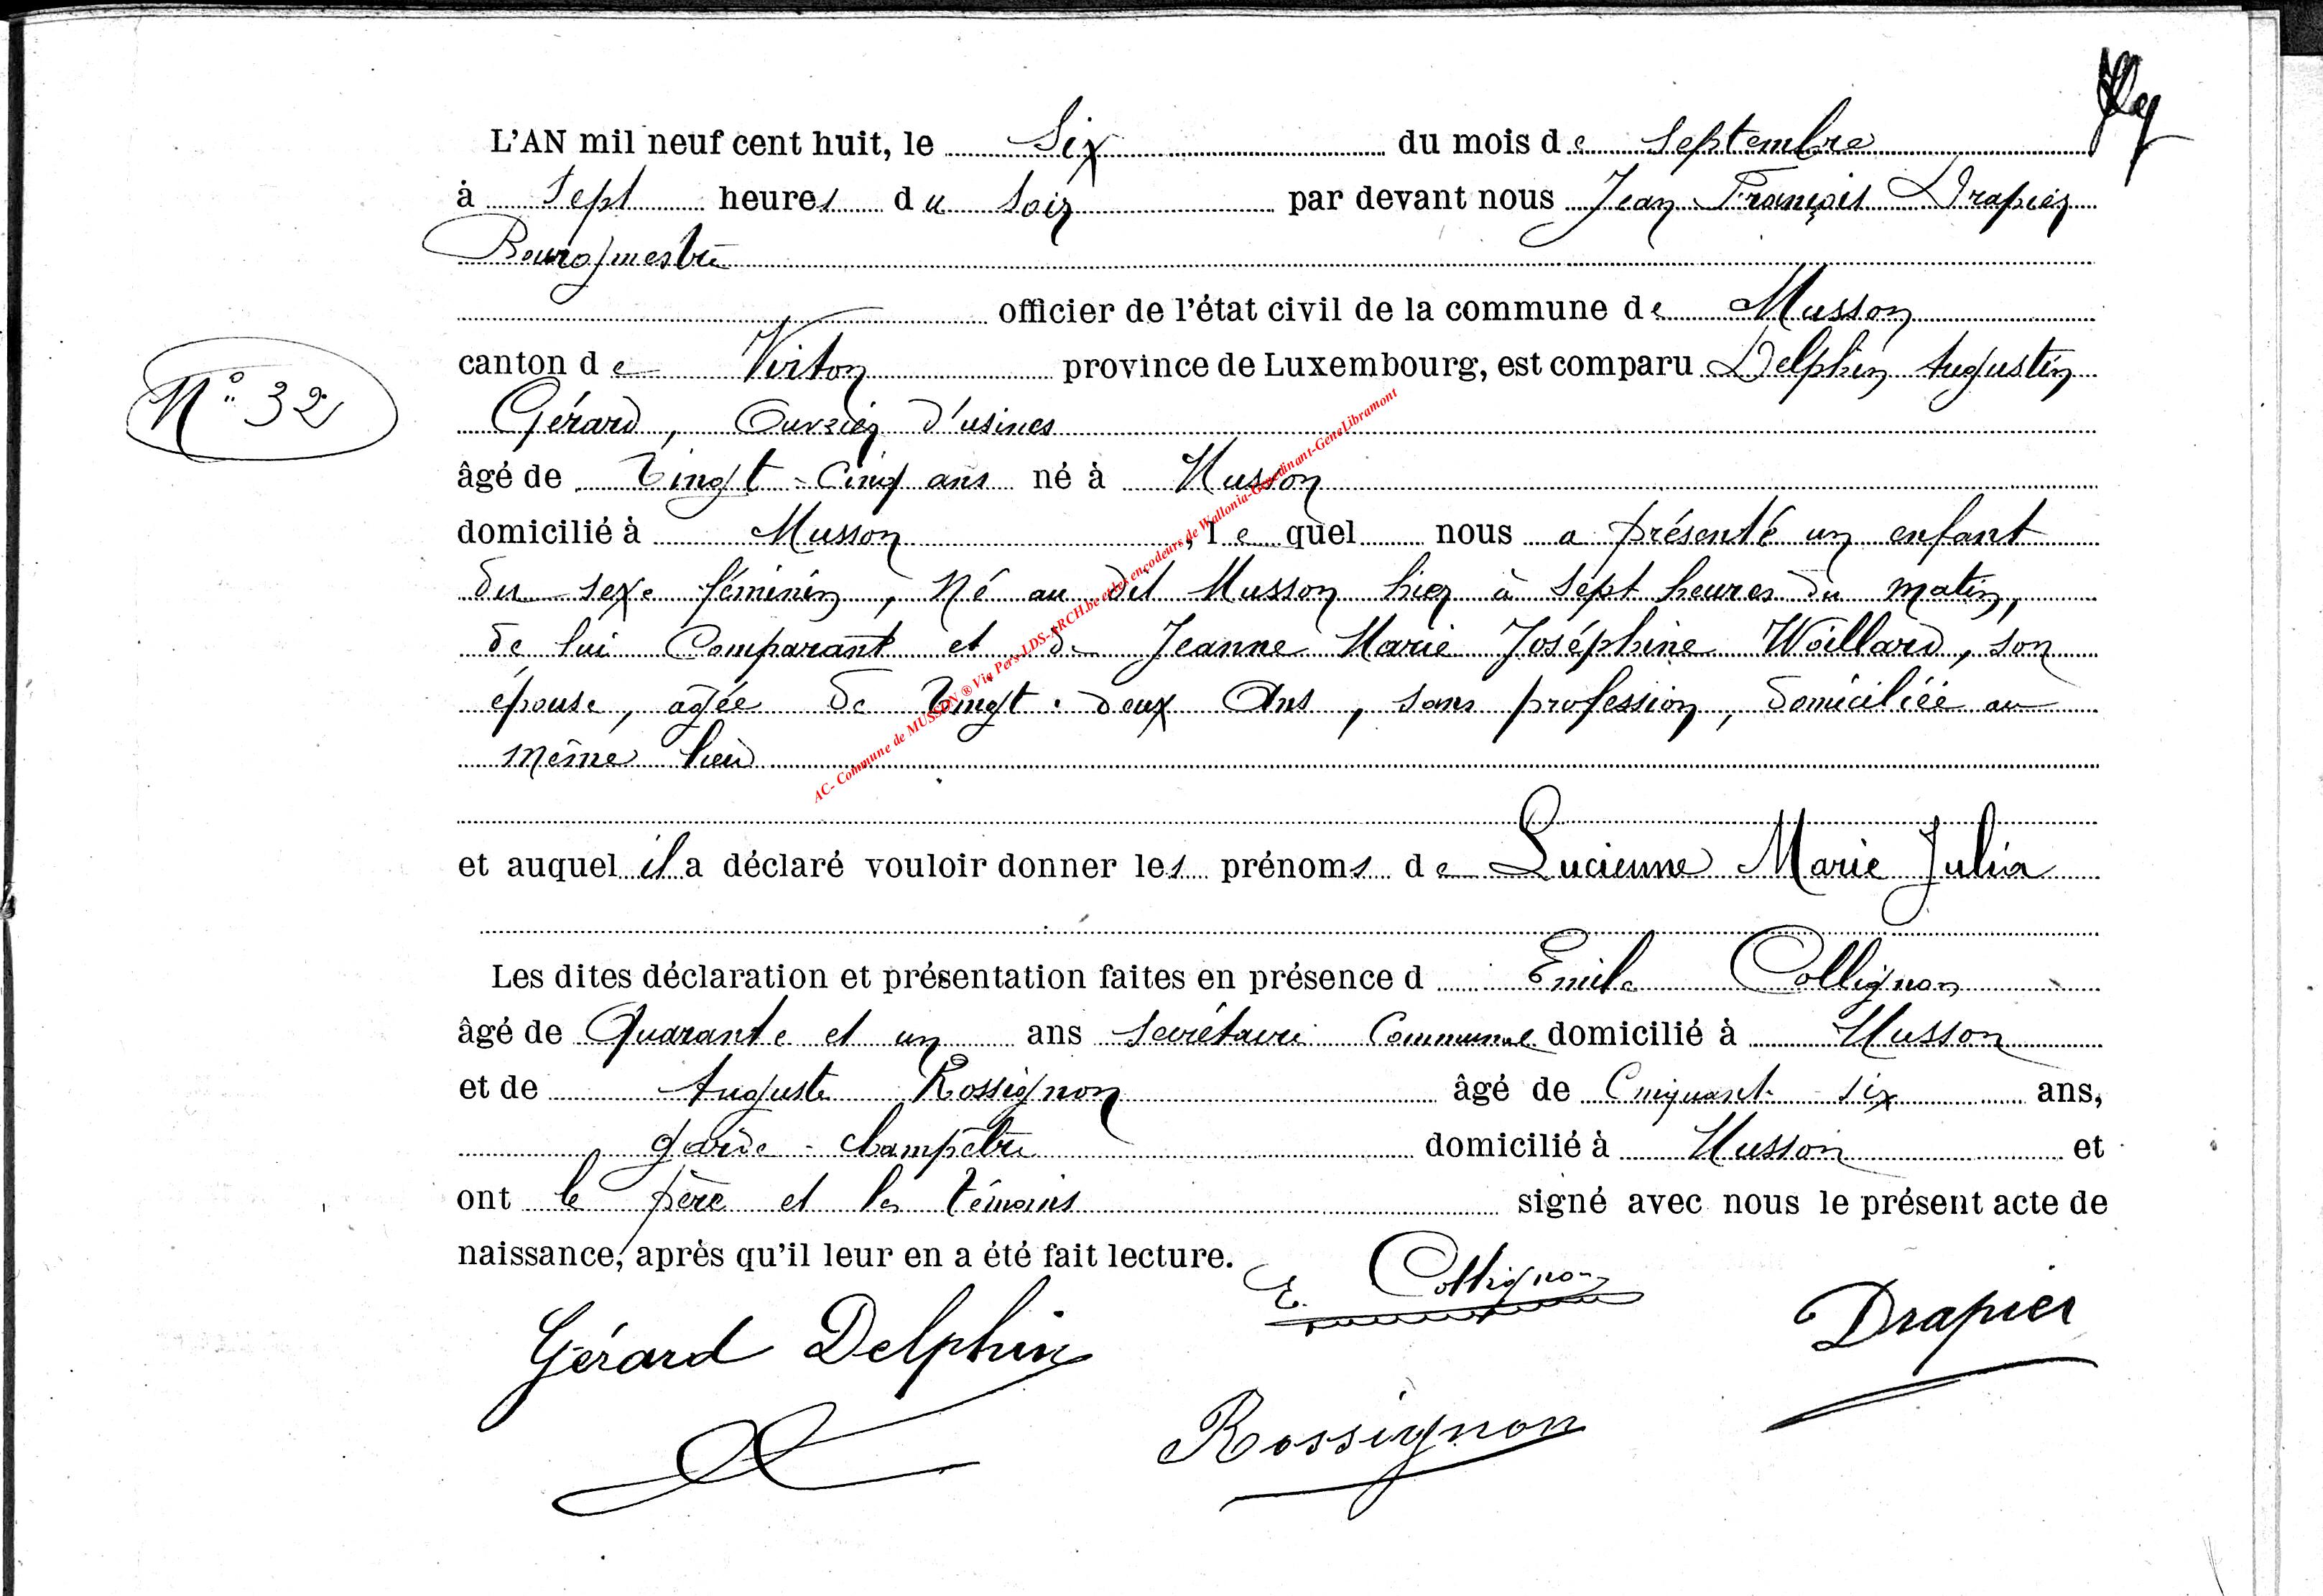 L'AN mil neuf cent huit, le Six du mois de Septembre
à Sept heures du Soir par devant nous Jean François Drapier
Bourgmestre
officier de l'état civil de la commune de Musson
canton de Virton province de Luxembourg, est comparu Delphin Augustin
N° 32
Gérard, Ouvrier d'usines
âgé de Vingt-Cinq ans né à Musson
domicilié à Musson, le quel nous a présenté un enfant
du sexe féminin, Né au dit Musson hier à Sept heures du matin,
de lui Comparant et de Jeanne Marie Joséphine Woillard, son
épouse, agée de Vingt-deux Ans, sans profession, domiciliée au
même lieu
AC- Commune de MUSSON ® Via Pers-LDS-ARCH.be et les encodeurs de Wallonia-Genedinant-GeneLibramont
et auquel il a déclaré vouloir donner les prénoms de Lucienne Marie Julia
Les dites déclaration et présentation faites en présence d Emile Collignon
âgé de Quarante et un ans Secrétaire Communal domicilié à Musson
et de Auguste Rossignon âgé de Cinquante-six ans,
garde-champêtre domicilié à Musson et
ont le père et les témoins signé avec nous le présent acte de
naissance, après qu'il leur en a été fait lecture.
E. Collignon
Gérard Delphin
Drapier
Rossignon